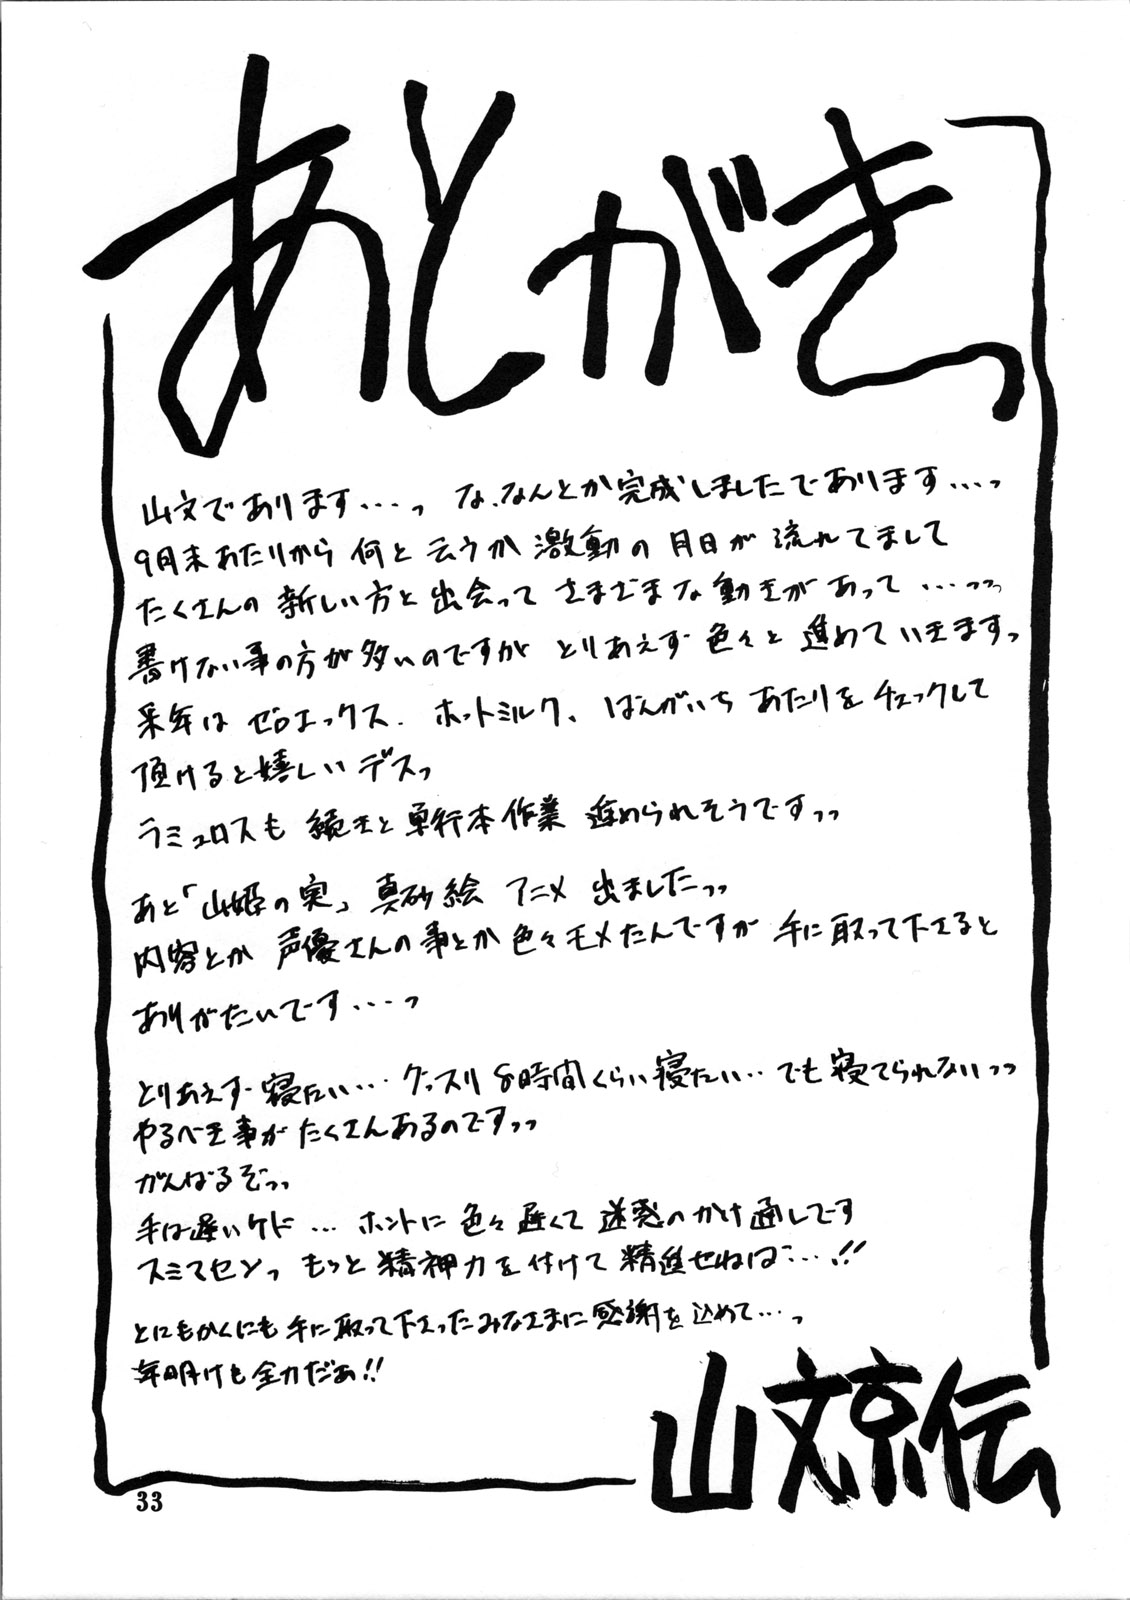 あとがきっ
山文であります・・・っ な、なんとか完成しましたであります・・・っ
9月末あたりから 何と云うか 激動の 月日が 流れてまして
たくさんの 新しい方と 出会って さまざまな 動きがあって ・・・っっっ
書けない事の方が多いのですが とりあえず 色々と 進めていきますっ
来年は ゼロエックス. ホットミルク、ばんがいち あたりを チェックして
頂けると嬉しいデスっ
ラミュロスも 続きと 単行本作業 進められそうですっっ
あと「山姫の実」真砂絵 アニメ 出ましたっっ
内容とか 声優さんの事とか 色々モメたんですが 手に取って下さると
ありがたいです・・・っ
とりあえず 寝たい・・・グッスリ 8時間くらい寝たい・・・でも 寝てられないっっ
やるべき事が たくさんあるのですっっ
がんばるぞっっ
手は遅いケド ・・・ ホントに 色々 遅くて 迷惑のかけ通しです
スミマセンっ もっと 精神力を付けて 精進せねば・・・!!
とにもかくにも 手に取って下さったみなさまに 感謝を 込めて・・・っ
年明けも 全力だぁ!!
山文京伝
33